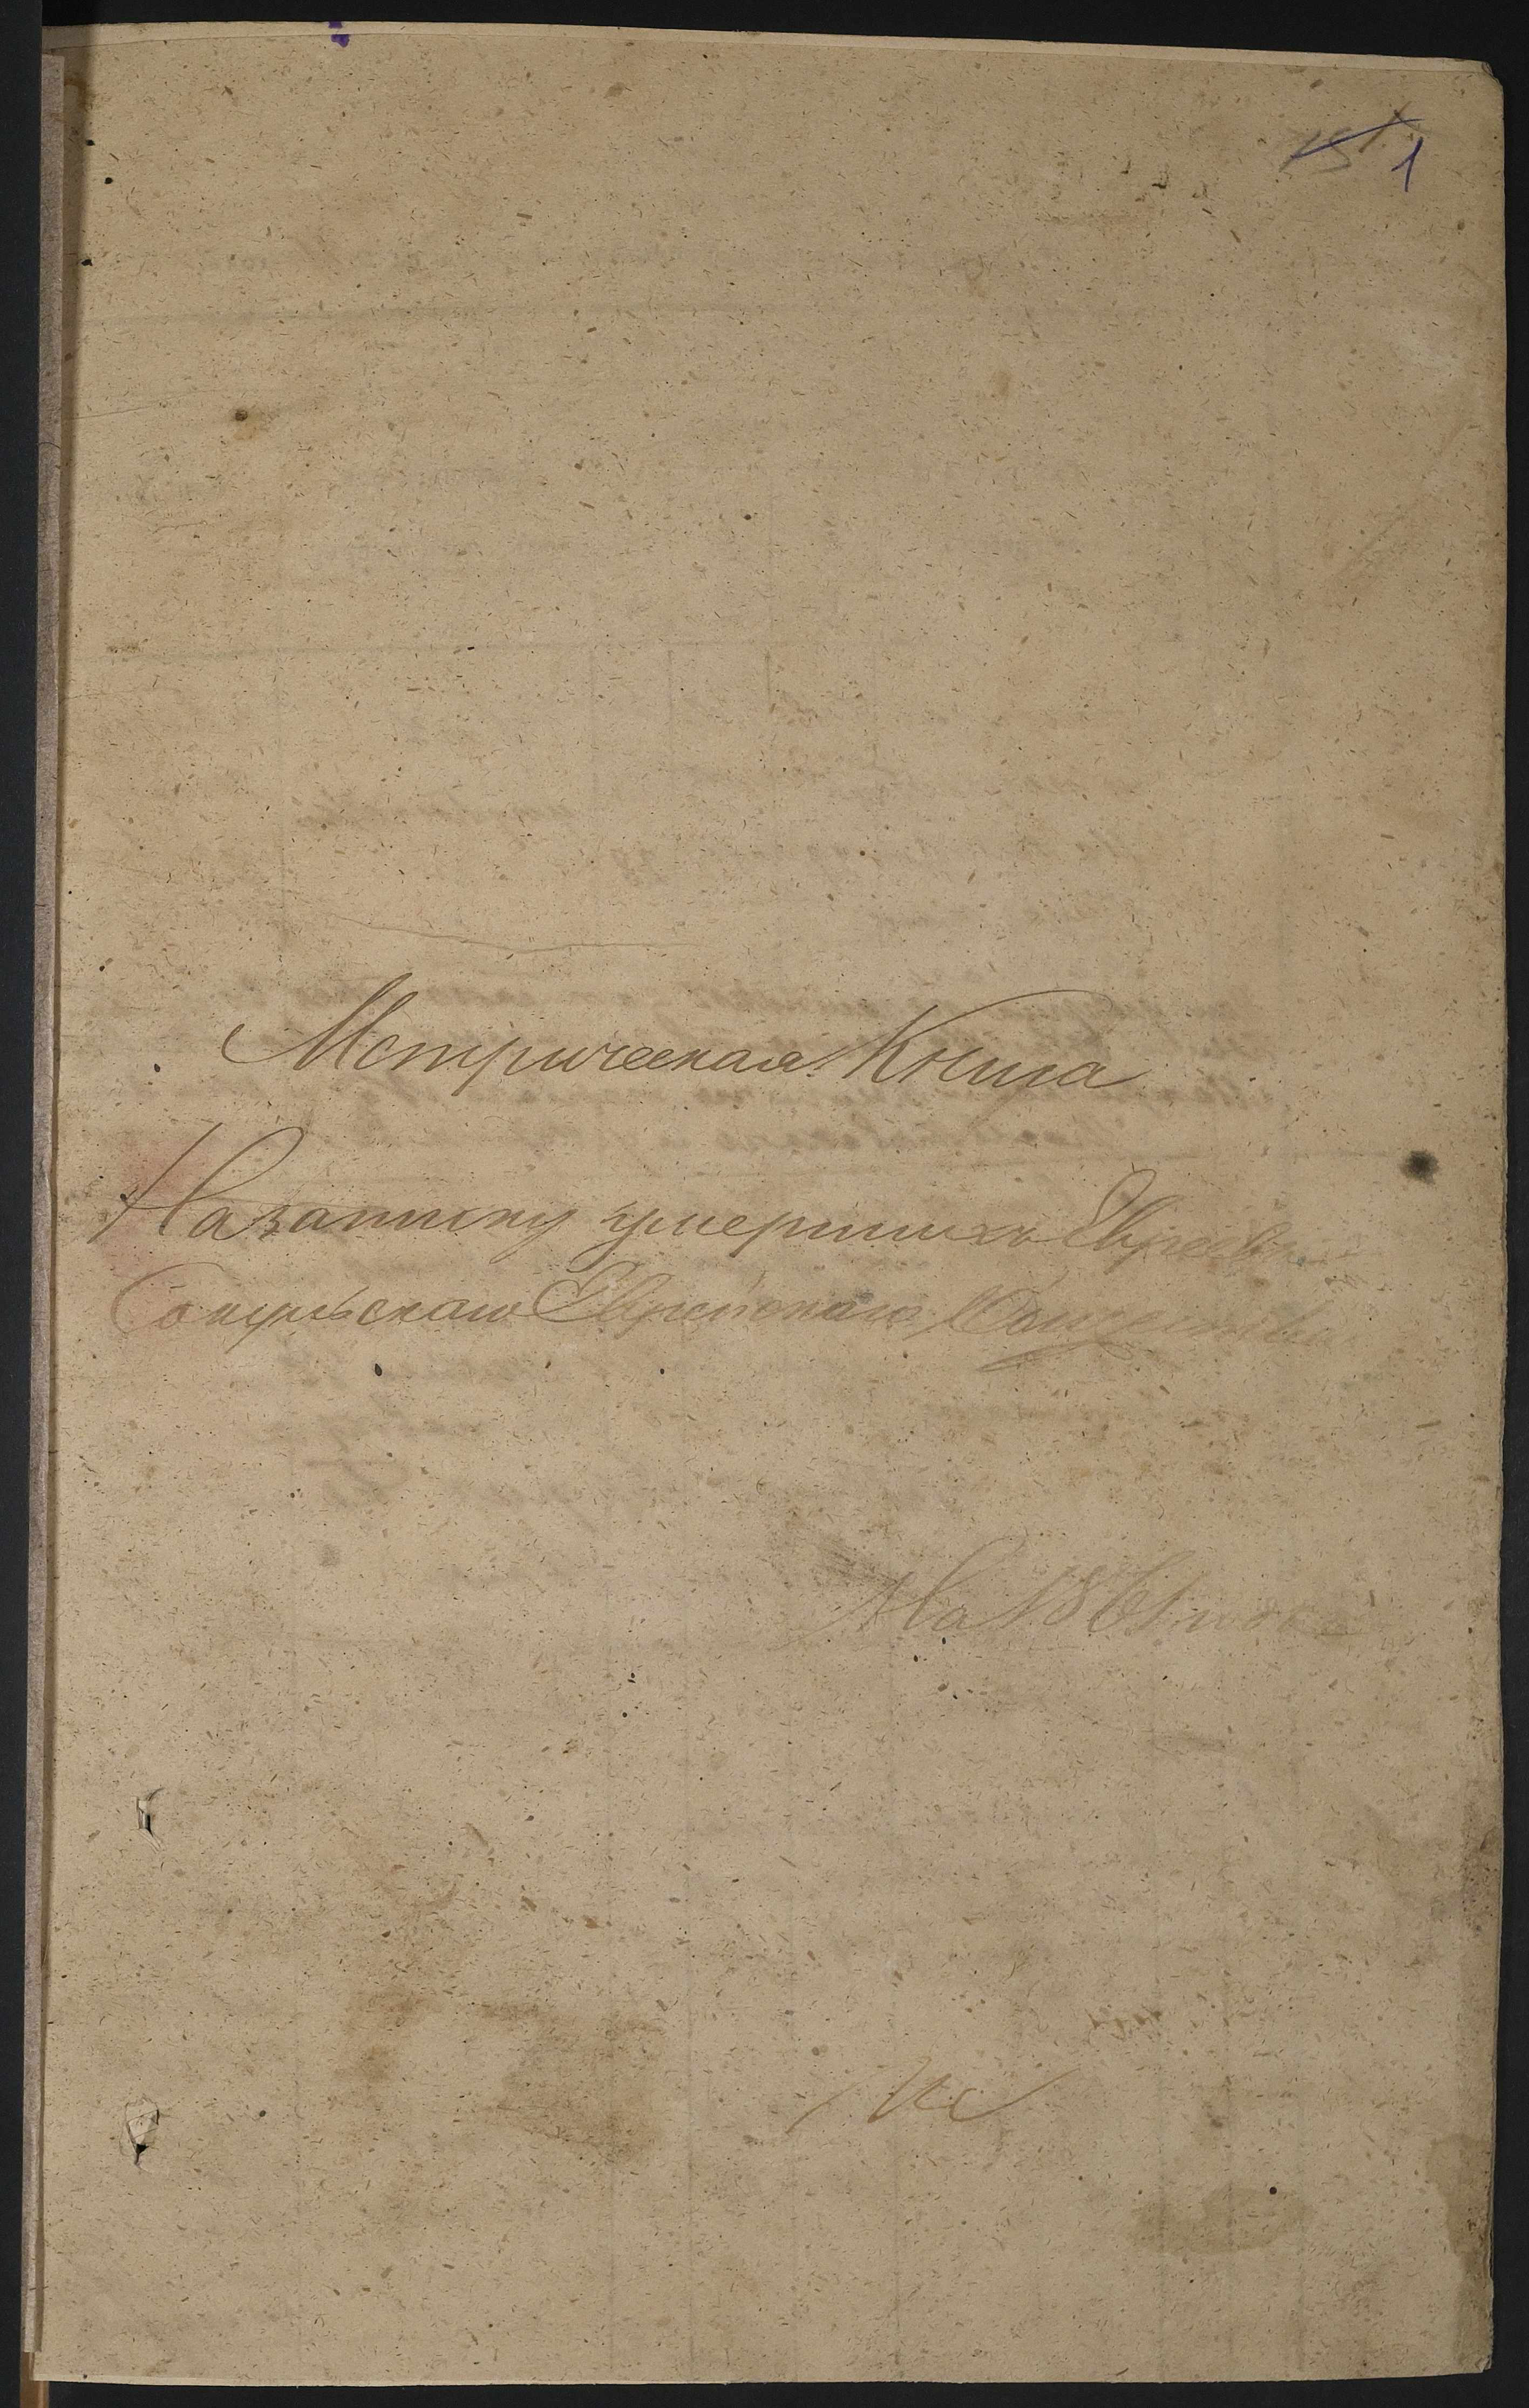 1
Метрическая Книга
На записку умершихъ Евреевъ
Сокульскаго Еврейскаго Общества
На 1861 годъ